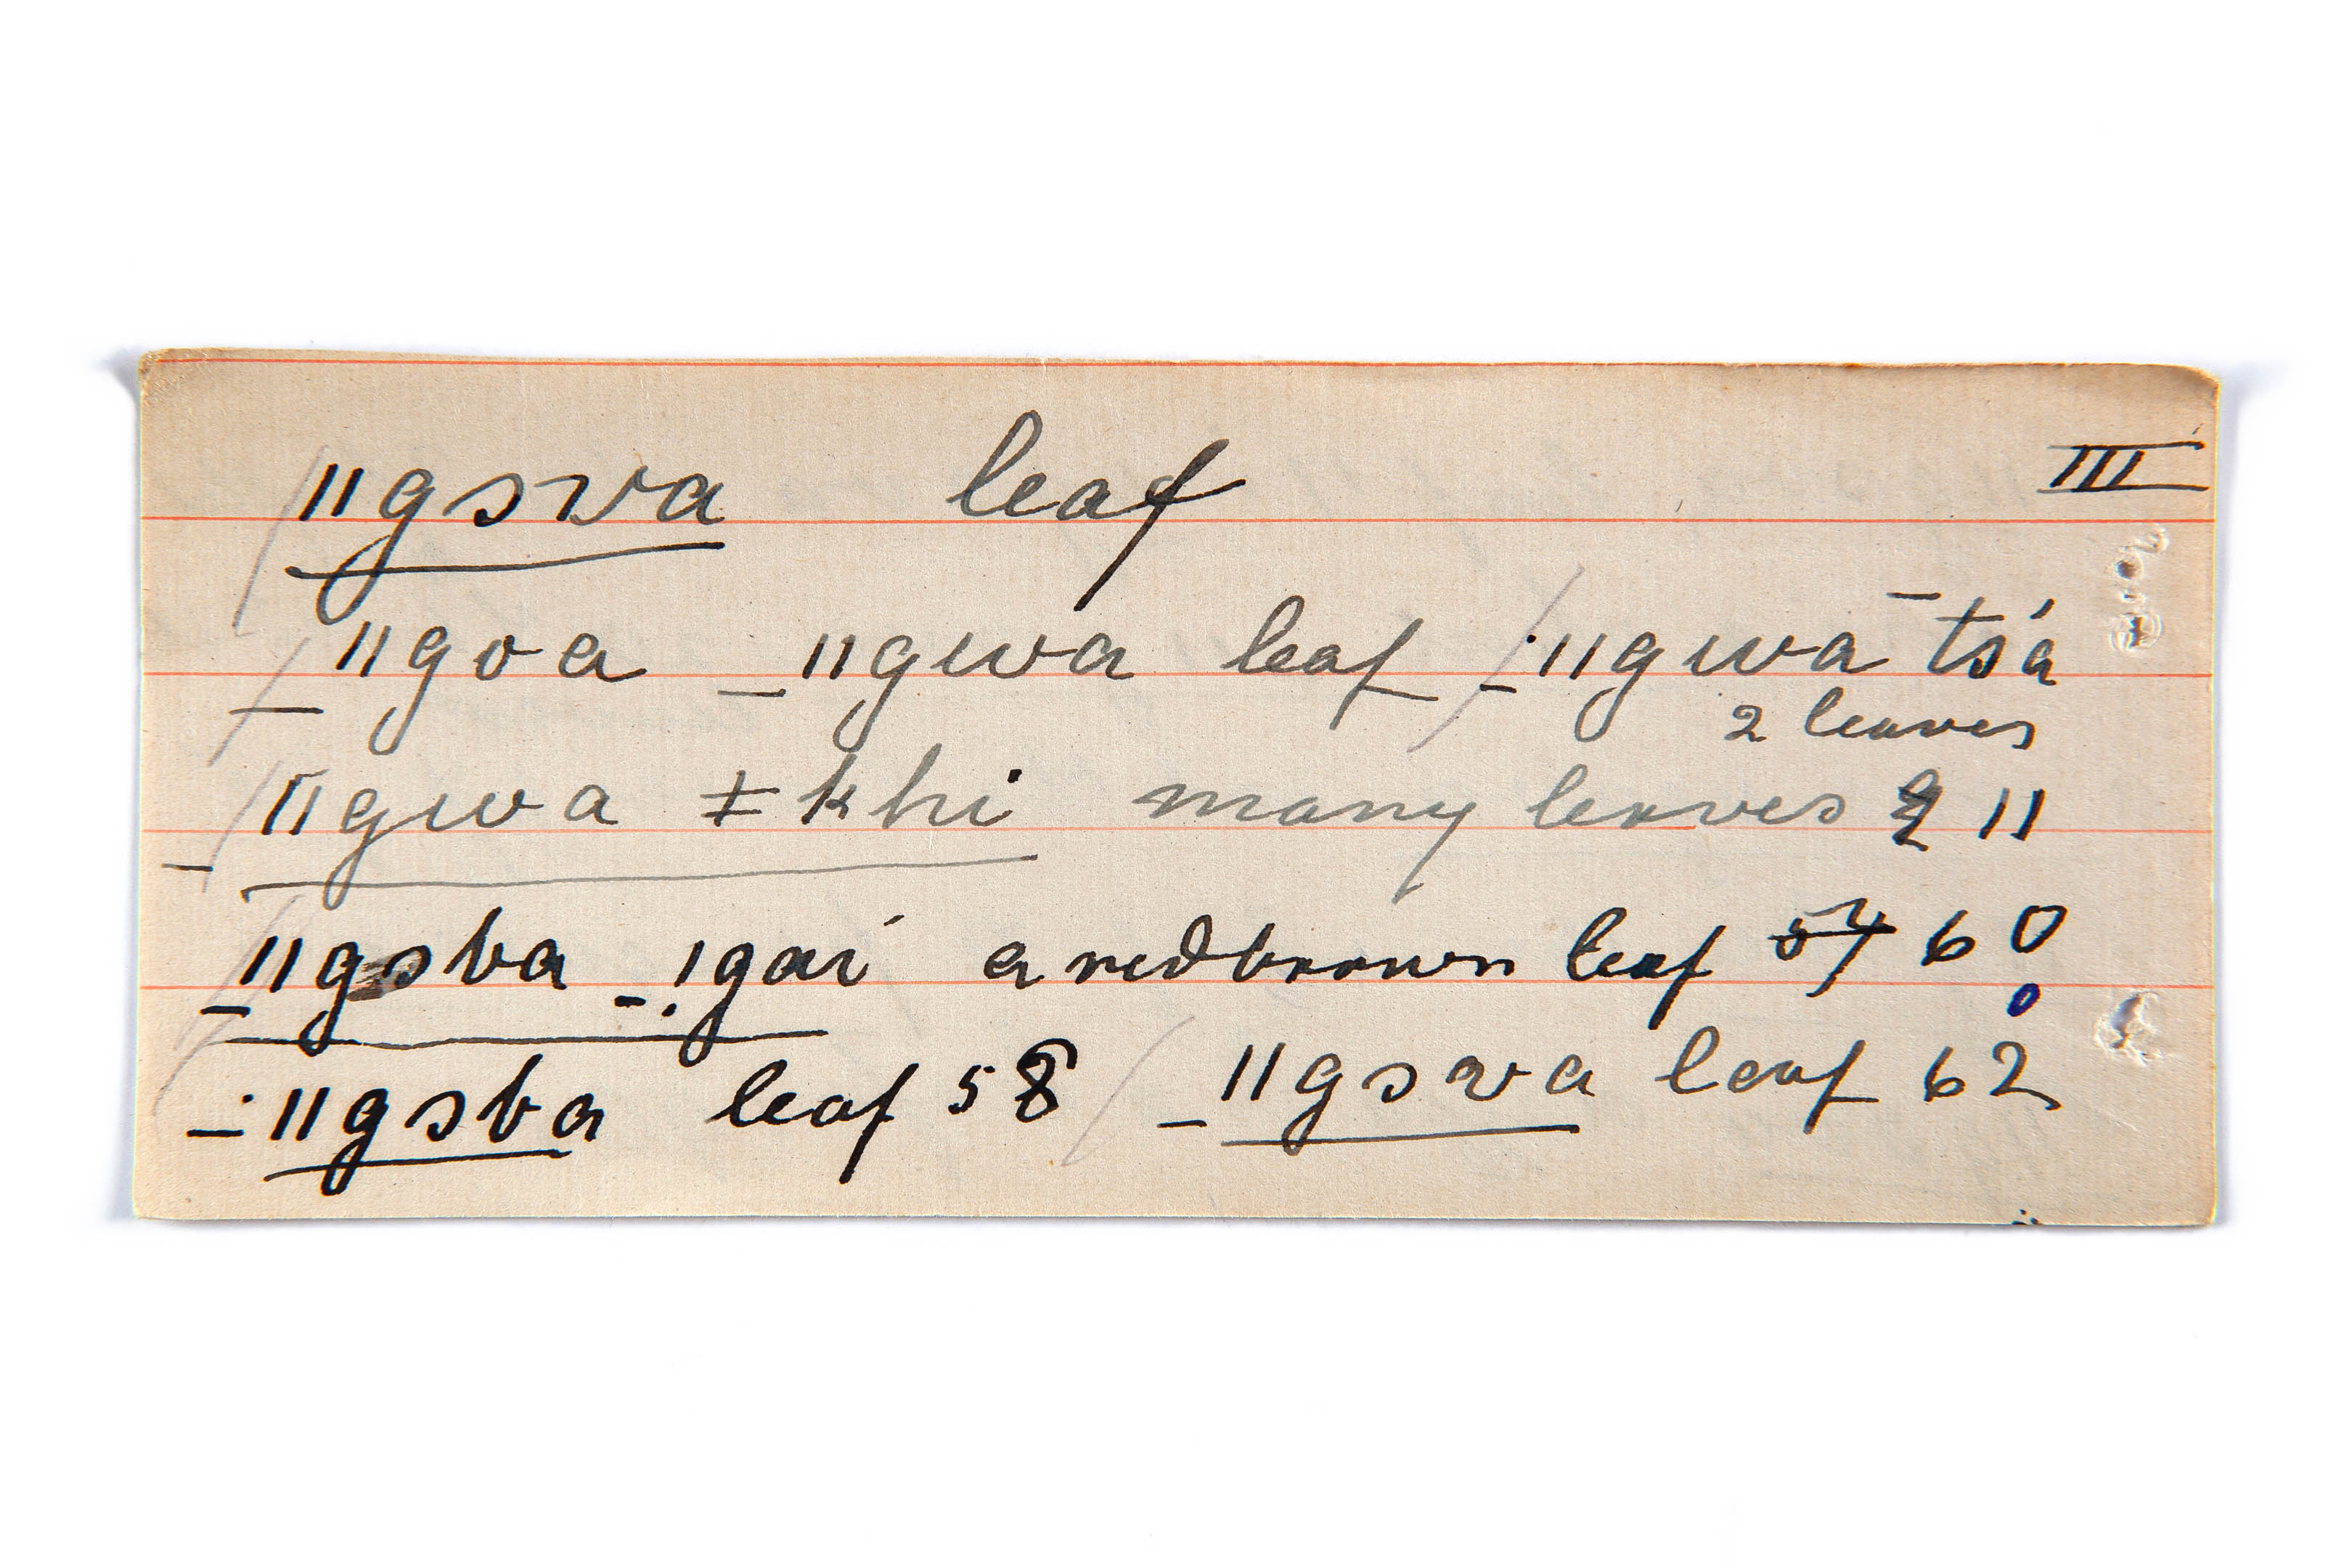 ǁgɔwa leaf III
_ǁgoa _ǁgwa leaf /-̇ǁgwa ¯tsʼá
2 leaves
_ǁgwa ǂkhi many leaves 11
_ǁgɔba _!gai a redbrown leaf 60
-̇ǁgɔba leaf 58 / _ǁgɔwa leaf 62